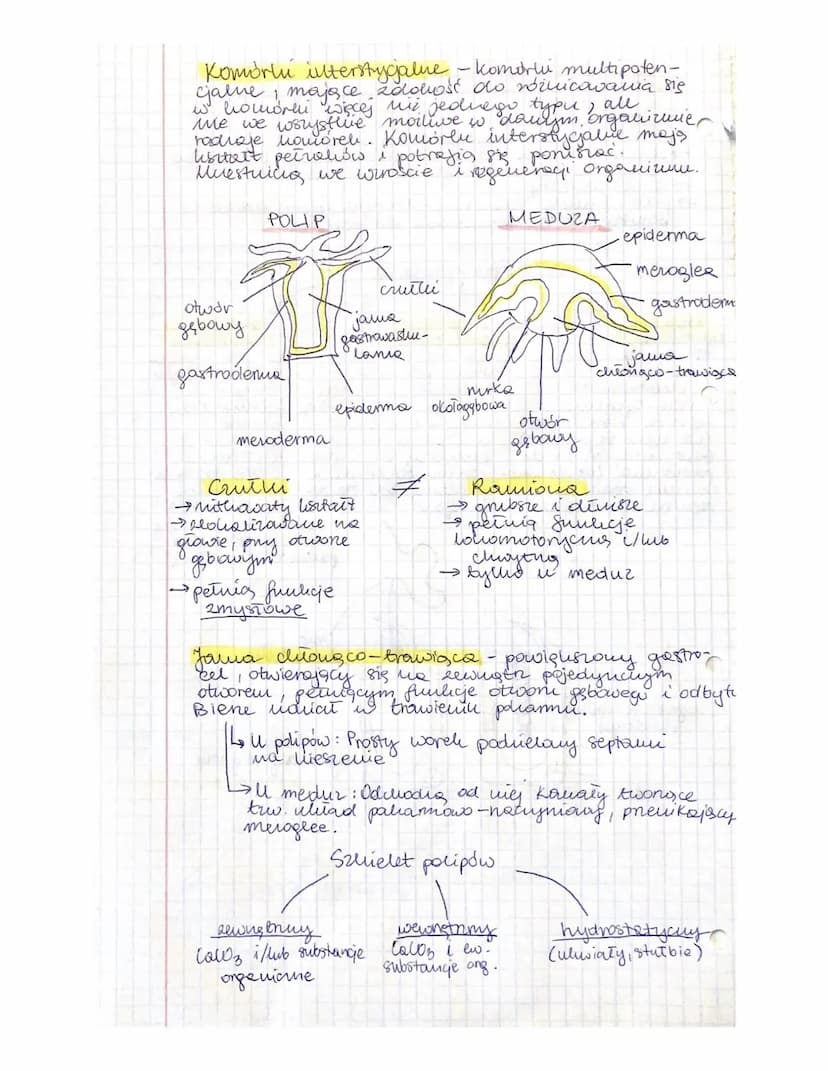 Komórki interstycjalne - komórki multipoten-
cjalne, mające zdolność do różnicowania się
w komórki więcej niż jednego typu, ale
nie we wszystkie możliwe w danym organizmie
rodzaje komórek. Komórki interstycjalne mają
kształt pęcherzyków i potrafią się poruszać.
Uczestniczą we wzroście i regeneracji organizmu.
POLIP
MEDUZA
epiderma
mezoglea
gastroderm
czułki
otwór
gębowy
jama
gastrowasku-
larna
gastroderma
jama
chłonąco-trawiąca
epiderma
rurka
okołogębowa
otwór
gębowy
mezoderma
Czułki ≠ Ramiona
→ nitkowaty kształt
→ zlokalizowane na
głowie, przy otworze
gębowym
→ pełnią funkcje
zmysłowe
→ grubsze i dłuższe
→ pełnią funkcje
lokomotoryczną i/lub
chwytną
→ tylko u meduz
Jama chłonąco-trawiąca - powiększony gastro-
cel, otwierający się na zewnątrz pojedynczym
otworem, pełniącym funkcje otworu gębowego i odbytu
Bierze udział w trawieniu pokarmu.
↳ U polipów: Prosty worek podzielony septami
na kieszenie
↳ U meduz: Odchodzą od niej kanały tworzące
tzw. układ pokarmowo-naczyniowy, przenikający
mezogleę.
Szkielet polipów
zewnętrzny
CaCO3 i/lub substancje
organiczne
wewnętrzny
CaCO3 i ew.
substancje org.
hydrostatyczny
(ukwiały, stułbie)